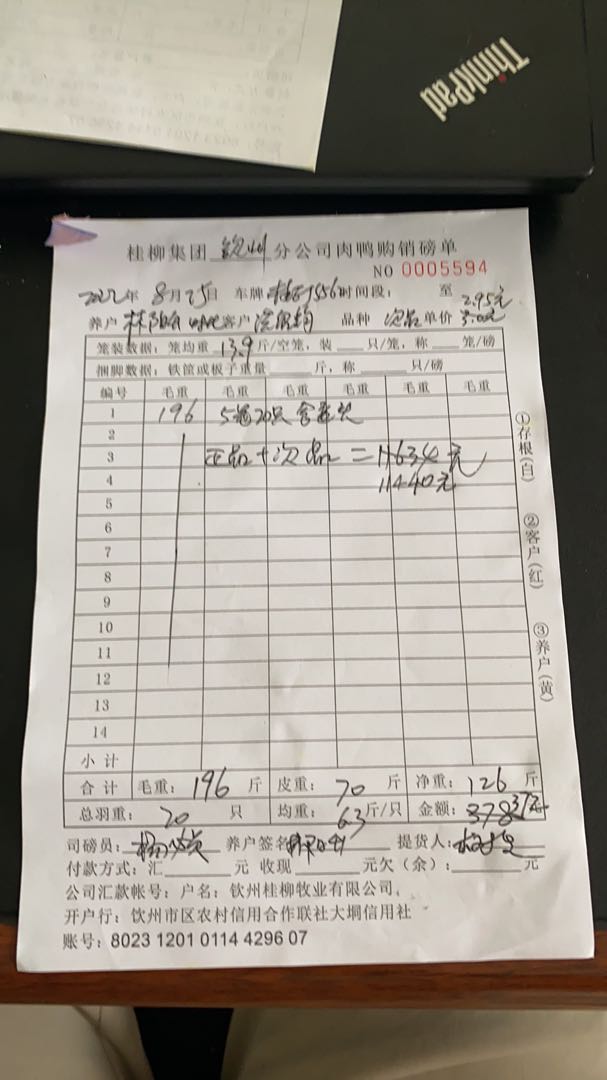 ThinkPad
桂柳集团 钦州 分公司肉鸭购销磅单
NO 0005594
2022年 8月25日 车牌 时间段： 至
2.95元
养户 客户 品种 次品 单价 3.00元
笼装数据：笼均重 13.9 斤/空笼，装 只/笼，称 笼/磅
捆脚数据：铁筐或板子重量 斤，称 只/磅
编号 毛重 毛重 毛重 毛重 毛重 毛重
1 196 5笼20只
2
3 正品+次品=11634元
4 11440元
5
6
7
8
9
10
11
12
13
14
小计
合计 毛重：196斤 皮重：70斤 净重：126斤
总羽重：20只 均重：63斤/只 金额：378
司磅员： 养户签名： 提货人：
付款方式：汇 元 收现 元欠（余）： 元
公司汇款帐号：户名：钦州桂柳牧业有限公司，
开户行：钦州市区农村信用合作联社大垌信用社
账号：8023 1201 0114 4296 07
①存根(白)
②客户(红)
③养户(黄)